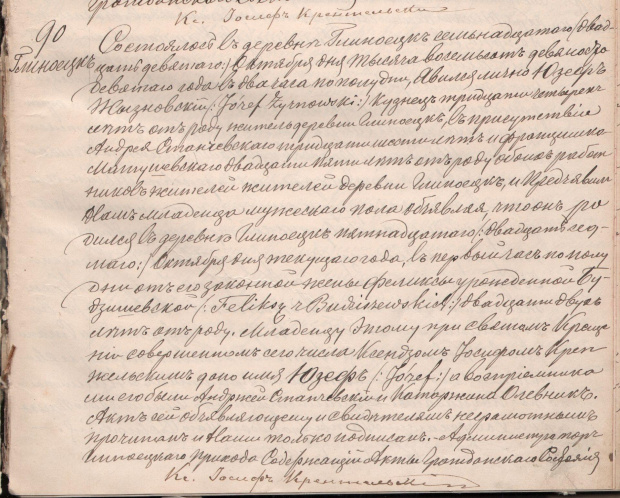 Кс. Іосифъ Крентельскій
90
Глиноецкъ
Состоялось въ деревнѣ Глиноецкъ семьнадцатаго /: двад-
цать девятаго :/ Октября дня тысяча восемьсотъ девяносто
девятаго года въ два часа пополудни, Явился лично Юзефъ
/: Józef Żyrnowski :/ кузнецъ тридцати четырехъ
лѣтъ отъ роду житель деревни Глиноецкъ, въ присутствіи
Андрея Станчевскаго тридцати шести лѣтъ и Францишка
Матушевскаго двадцати пяти лѣтъ отъ роду обоихъ работ-
никовъ жителей жителей деревни Глиноецкъ, и Предъявилъ
Намъ младенца мужескаго пола объявляя, что онъ ро-
дился въ деревнѣ Глиноецкъ пятнадцатаго /: двадцать седь-
маго :/ Октября дня текущаго года, въ первый часъ по полу
дни отъ его законной жены Феликсы урожденной Бу-
дзишевской /: Feliksy z Budziszewskich :/ двадцати двухъ
лѣтъ отъ роду. Младенцу Этому при святомъ Креще-
ніи совершенномъ сего числа Ксендзомъ Іосифомъ Крен-
тельскимъ дано имя Юзефъ /: Józef :/ а воспріемника
ми его были Андржей Станчевскій и Катаржина Олевникъ.
Актъ сей объявляющему и свидѣтелямъ неграмотнымъ
прочитанъ и Нами только подписанъ. Администраторъ
Глиноецкаго Прихода Содержащій Акты Гражданскаго Состоянія
Кс. Іосифъ Крентельскій